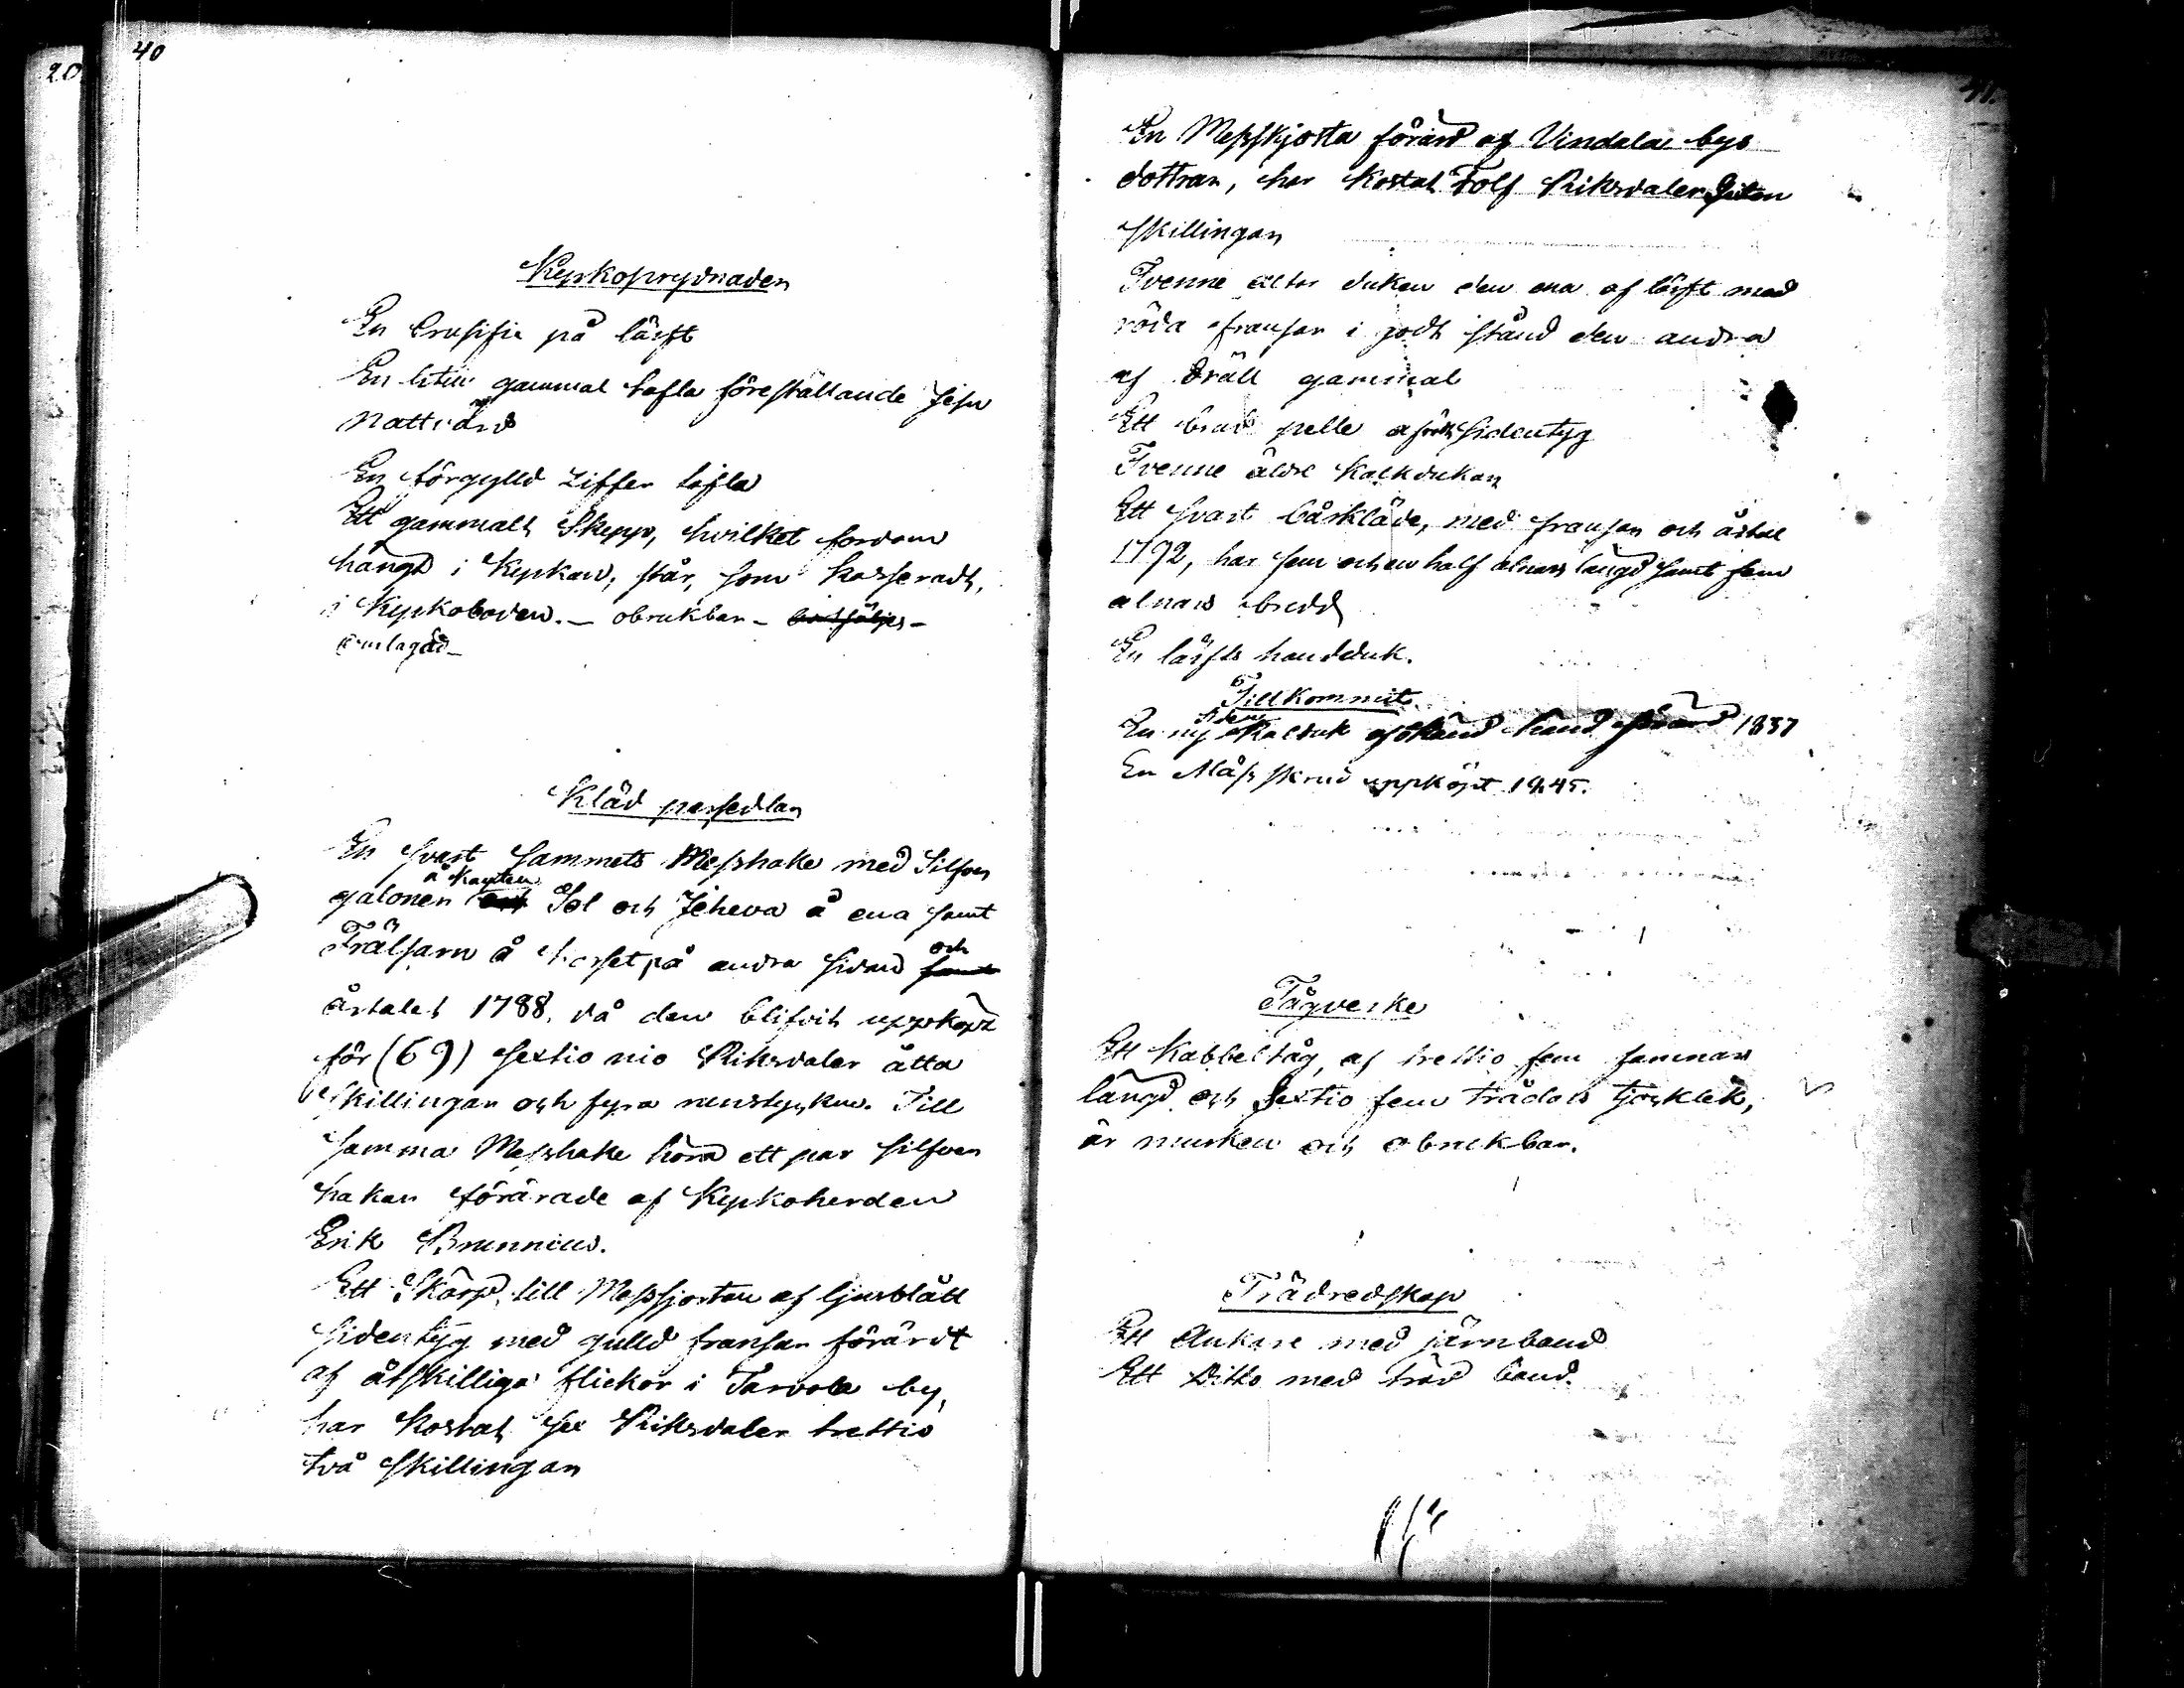 20
40
Kyrkoprydnader
En Crusifix på lärft
En liten gammal tafla föreställande Jesu
Nattvard
En förgylld Ziffer tafla
Ett gammalt Skepp, hvilket fordom
hängt i Kyrkan, står, som kasseradt,
i Kyrkoboden. – obrukbar –
Klädpersedlar
En svart Sammets Messhake med Silfver
galoner å Kanten Sol och Jehova å ena samt
Frälsarn å Korset på andra sidan och
årtalet 1788, då den blifvit uppköpt
för (69) Sextio nio Riksdaler åtta
Skillingar och fyra runstycken. Till
samma Messhake höra ett par silfver
hakar förärade af Kyrkoherden
Erik Brunnius.
Ett Skärp till Messsjortan af ljusblått
sidentyg med gulld fransar förärdt
af åtskilliga flickor i Tarvola by,
har Kostat sex Riksdaler trettio
två skillingar
41.
En Messkjorta förärd af Vindala bys
döttrar, har Kostat Tolf Riksdaler
skillingar
Tvenne altar dukar den ena af lärft med
röda fransar i godt stånd den andra
af Dräll gammal
Ett brud pelle sidentyg
Tvenne äldre Kalkdukar
Ett svart bårkläde, med fransar och årtal
1792, har fem och en half alnars längd samt fem
alnars bredd
En lärfts handduk.
Tillkommit
En ny Kalkduk af okänd hand förärd 1837
En Mässskrud uppköpt 1845.
Tågverke
Ett Kabbeltåg, af trettio fem famnars
längd och Sextio fem trådars tjocklek,
är murken och obrukbar.
Trädredskap
Ett Ankare med järnband
Ett Ditto med träd band.